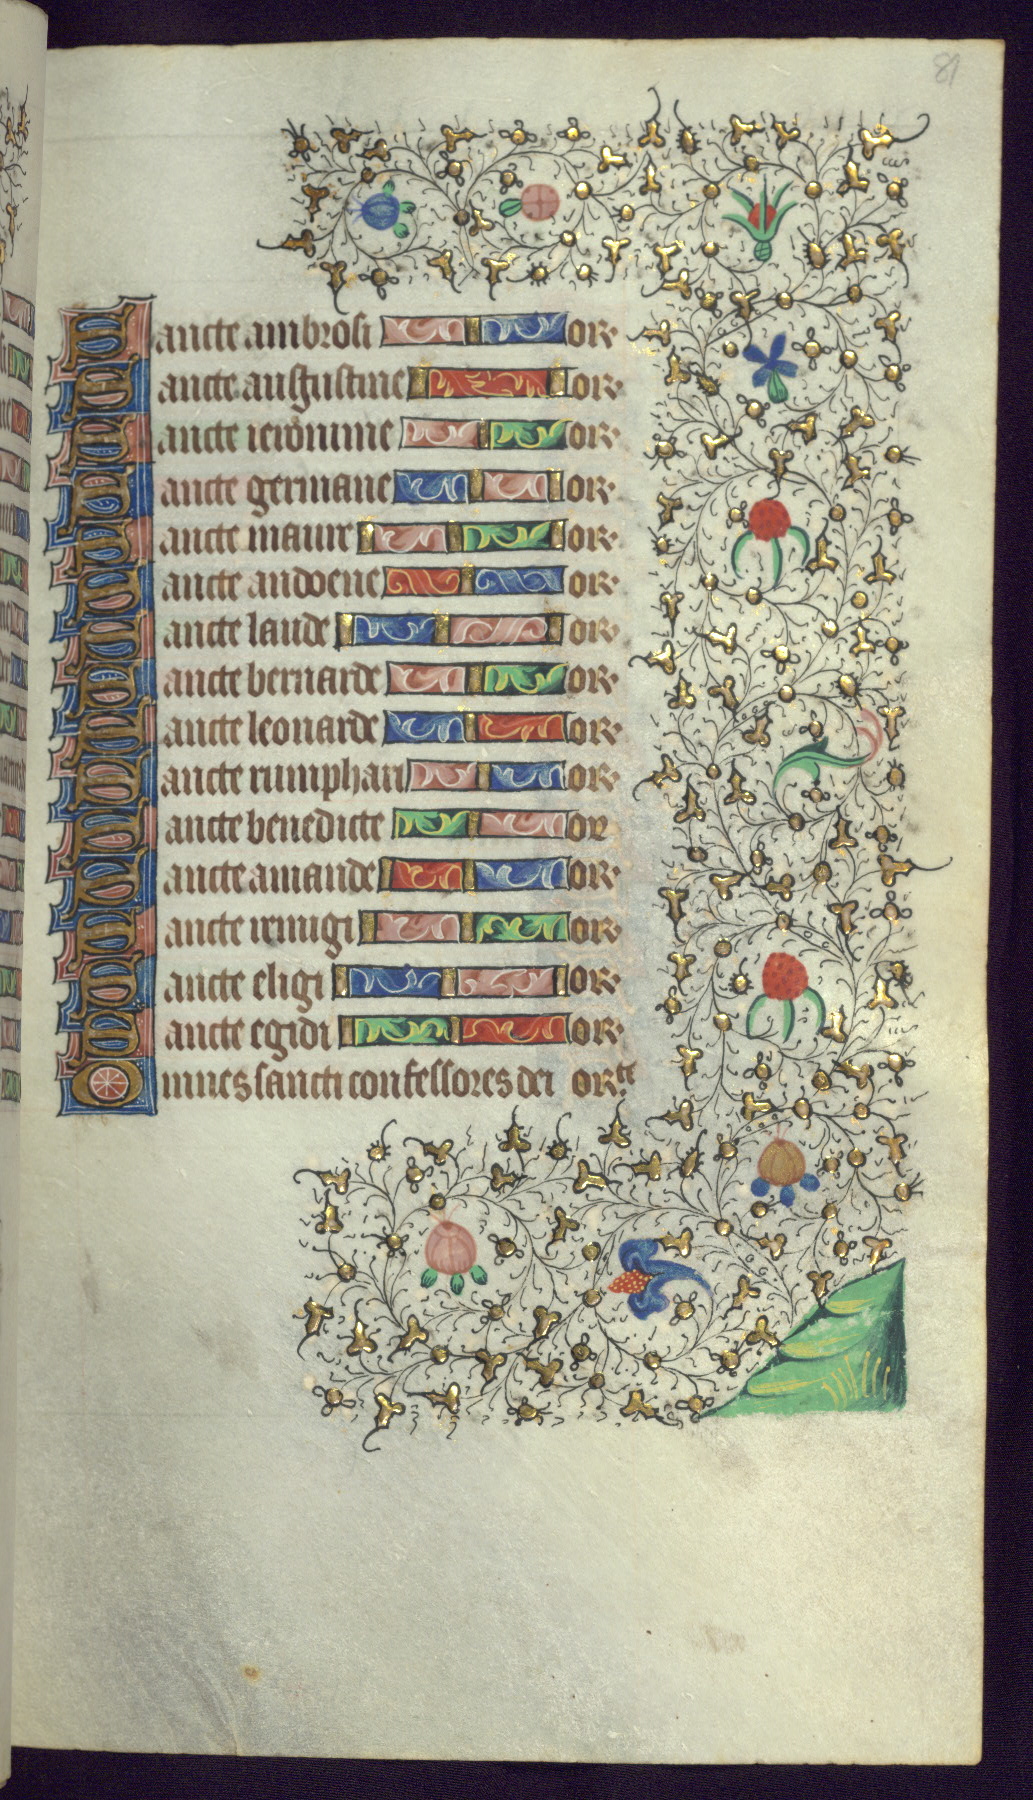 81
Sancte ambrosi or.
Sancte augustine or.
Sancte ieronime or.
Sancte germane or.
Sancte maure or.
Sancte audoene or.
Sancte laude or.
Sancte bernarde or.
Sancte leonarde or.
Sancte rumphari or.
Sancte benedicte or
Sancte amande or.
Sancte remigi or.
Sancte eligi or.
Sancte egidi or.
Omnes sancti confessores dei or.te